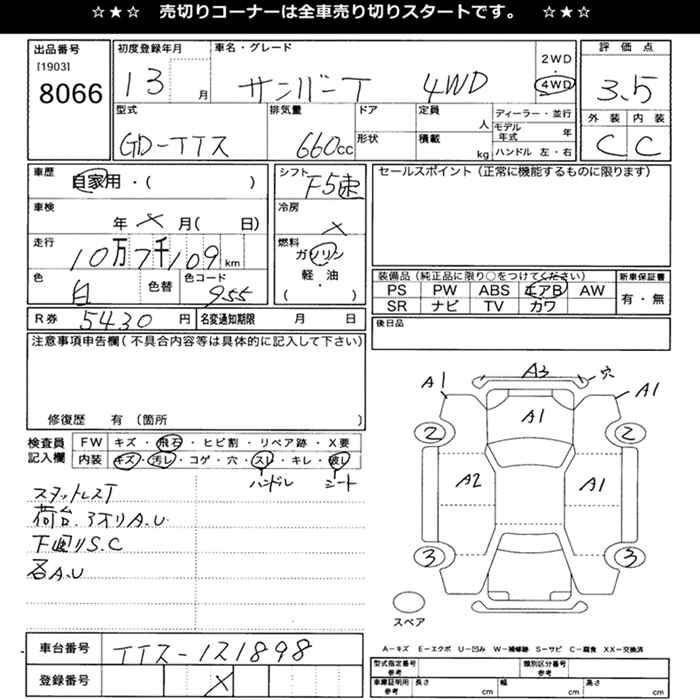 ☆★☆ 売切りコーナーは全車売り切りスタートです。 ☆★☆
出品番号
[1903]
8066
初度登録年月
13 月
車名・グレード
サンバーT 4WD
2WD
・
4WD
評価点
3.5
外装 内装
C C
型式
GD-TT2
排気量
660cc
ドア
形状
定員
人
積載
kg
ディーラー・並行
モデル年式 年
ハンドル 左・右
車歴
自家用・( )
シフト
F5速
セールスポイント(正常に機能するものに限ります)
車検
年 × 月( 日)
冷房
×
走行
10万7千109km
燃料
ガソリン
軽・油
( )
色
白
色替
色コード
955
装備品(純正品に限り○をつけてください)
新車保証書
PS PW ABS エアB AW
有・無
SR ナビ TV カワ
R券 5430 円
名変通知期限 月 日
後日品
注意事項申告欄(不具合内容等は具体的に記入して下さい)
修復歴 有(箇所 )
検査員記入欄
FW キズ・飛石・ヒビ割・リペア跡・X要
内装 キズ・汚レ・コゲ・穴・スレ・キレ・破レ
ハンドル シート
スタットレスT
荷台、3オリA.U
下回りS.C
各A.U
A3 穴
A1 A1
A1
2 2
A2 A1
3 3
スペア
A-キズ E-エクボ U-凹み W-補修跡 S-サビ C-腐食 XX-交換済
車台番号
TT2-121898
登録番号
×
型式指定番号
参考
類別区分番号
参考
車庫証明用
参考
長さ cm
幅 cm
高さ cm